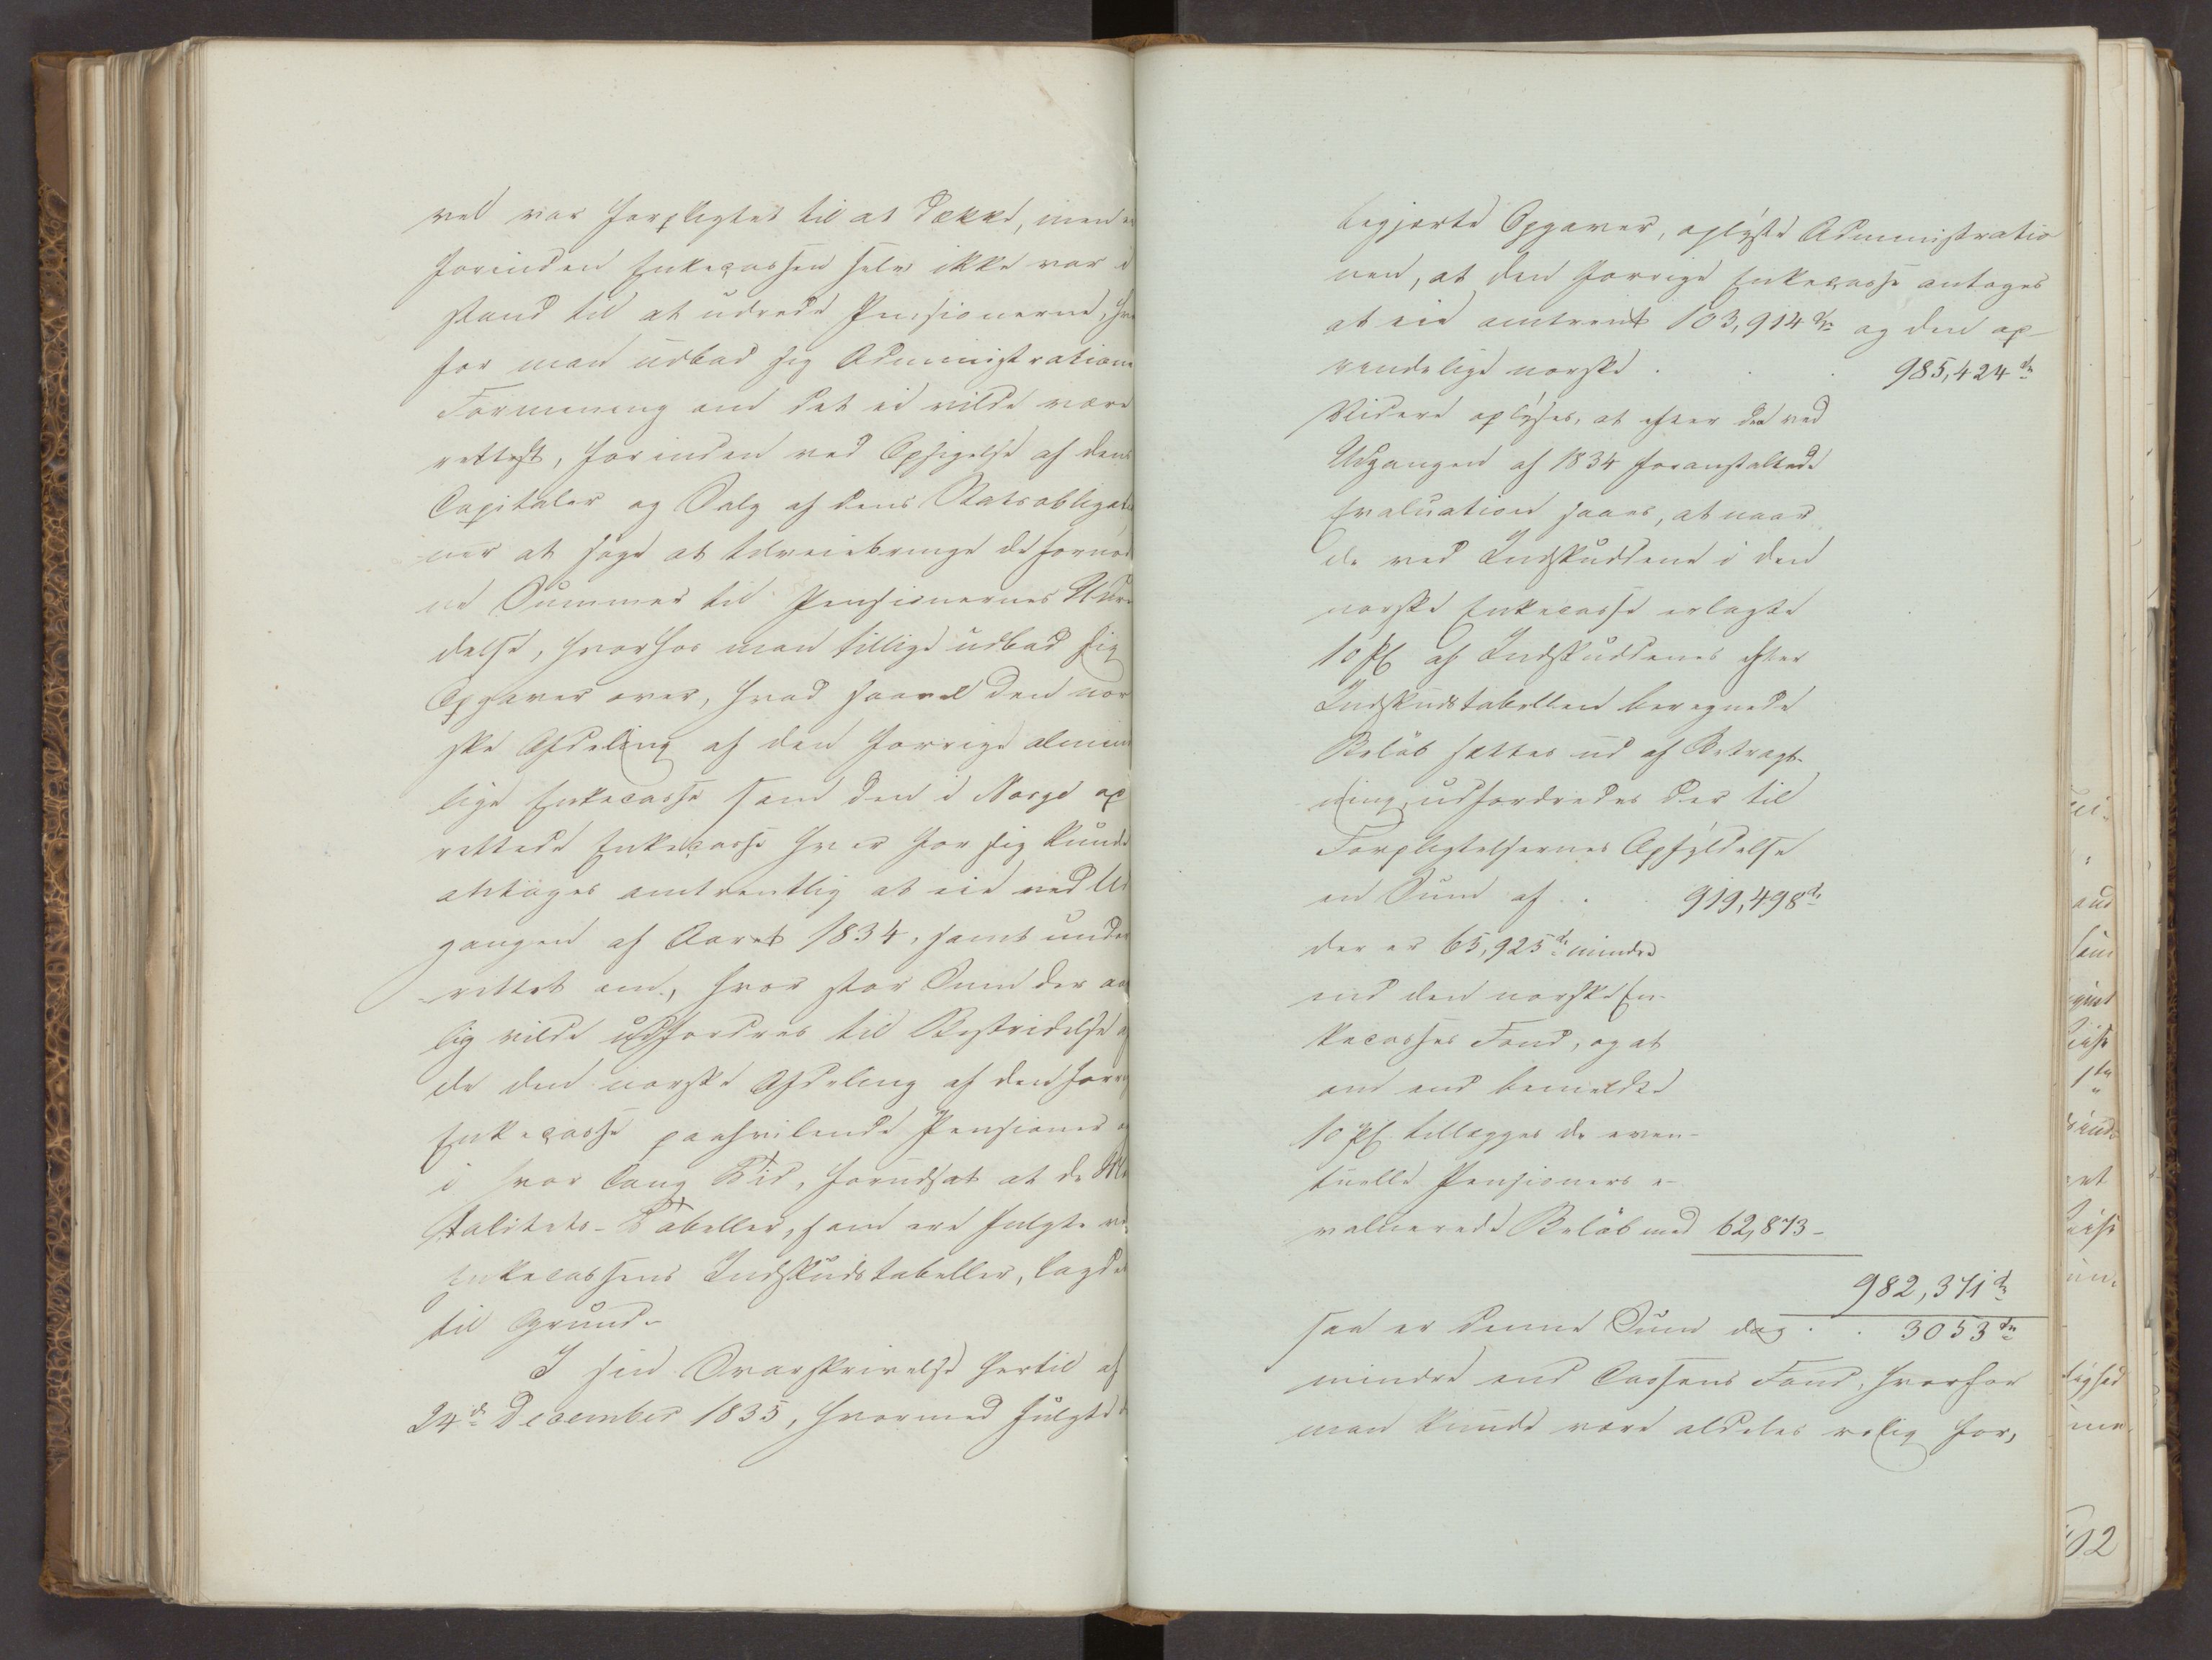 vel var forpligtet til at dække, men
forinden Enkecassen selv ikke var i
stand til at udrede Pensionerne, hvor
for man udbad sig Administrations
Formening om det ei vilde være
rettest, forinden ved Opsigelse af dens
Capitaler og Salg af dens Statsobligatio
ner at søge at tilveiebringe de fornød
ne Summer til Pensionernes Udre
delse, hvorhos man tillige udbad sig
Opgaver over, hvad saavel den nor
ske Afdeling af den forrige almin
lige Enkecasse som den i Norge op
rettede Enkecasse hver for sig kunde
antages omtrentlig at eie ved Ud
gangen af Aaret 1834, samt under
rettet om, hvor stor Sum der aar
lig vilde udfordres til Bestridelse af
de den norske Afdeling af den forrige
Enkecasse paahvilende Pensioner og
i hvor lang Tid, forudsat at de Mor
talitets-Tabeller, som ere fulgte ved
Enkecassens Indskudstabeller, lagdes
til Grund.
I sin Svarskrivelse hertil af
24de December 1835, hvormed fulgte de
begjærte Opgaver, oplyste Administratio
nen, at den forrige Enkecasse antoges
at eie omtrent 103,914 Sp og den op
rindelige norske . . . 985,424 Sp
Videre oplyses, at efter den ved
Udgangen af 1834 foranstaltede
Evaluation haves, at naar
de ved Indskuddene i den
norske Enkecasse erlagte
10 Pct af Indskuddenes efter
Indskudstabellen beregnede
Beløb sættes ud af Betragt-
ning, udfordredes der til
Forpligtelsernes Opfyldelse
en Sum af . . 919,498 Sp
der er 65,925 Sp mindre
end den norske En-
kecasses Fond, og at
om end bemeldte
10 Pct tillægges de even-
tuelle Pensioners e-
valuerede Beløb med 62,873 -
982,371 Sp
saa er denne Sum dog . . 3053 Sp
mindre end Cassens Fond, hvorfor
man kunde være aldeles rolig for,